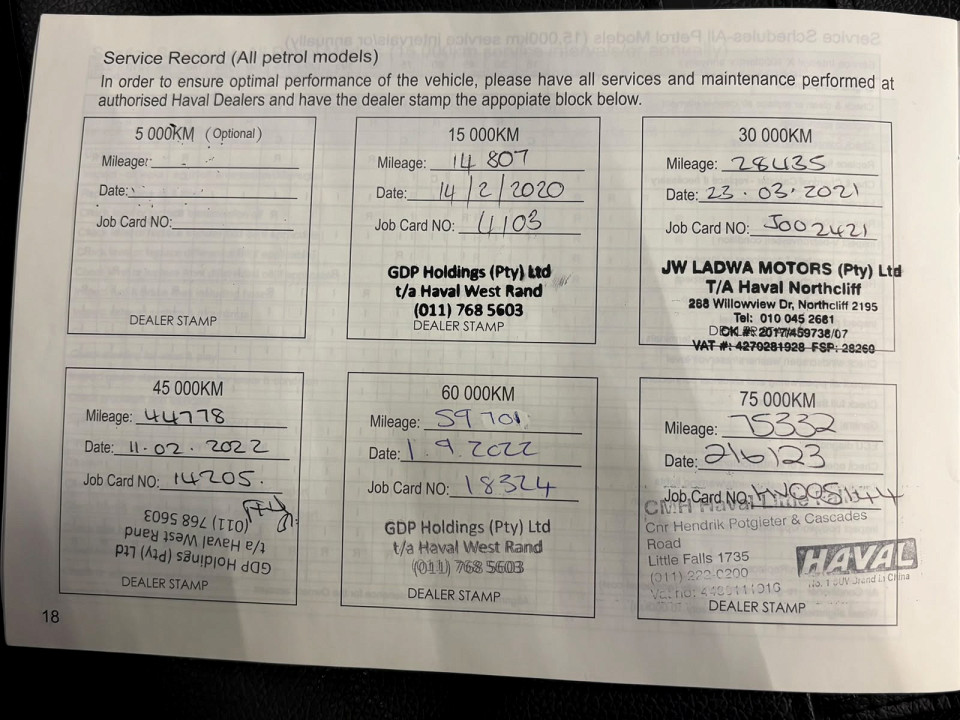 Service Record (All petrol models)
In order to ensure optimal performance of the vehicle, please have all services and maintenance performed at
authorised Haval Dealers and have the dealer stamp the appopiate block below.
5 000KM (Optional)
Mileage:
Date:
Job Card NO:
DEALER STAMP
15 000KM
Mileage: 14 807
Date: 14/2/2020
Job Card NO: 4103
GDP Holdings (Pty) Ltd
t/a Haval West Rand
(011) 768 5603
DEALER STAMP
30 000KM
Mileage: 28435
Date: 23.03.2021
Job Card NO: J002421
JW LADWA MOTORS (Pty) Ltd
T/A Haval Northcliff
268 Willowview Dr, Northcliff 2195
Tel: 010 045 2681
CK #: 2017/459738/07
VAT #: 4270281928 FSP: 28260
45 000KM
Mileage: 44778
Date: 11.02.2022
Job Card NO: 14205.
GDP Holdings (Pty) Ltd
t/a Haval West Rand
(011) 768 5603
DEALER STAMP
60 000KM
Mileage: 59701
Date: 1.9.2022
Job Card NO: 18324
GDP Holdings (Pty) Ltd
t/a Haval West Rand
(011) 768 5603
DEALER STAMP
75 000KM
Mileage: 75332
Date: 2/6/23
Job Card NO:
CMH Haval
Cnr Hendrik Potgieter & Cascades
Road
Little Falls 1735
(011) 222-0200
HAVAL
No. 1 SUV Brand in China
DEALER STAMP
18